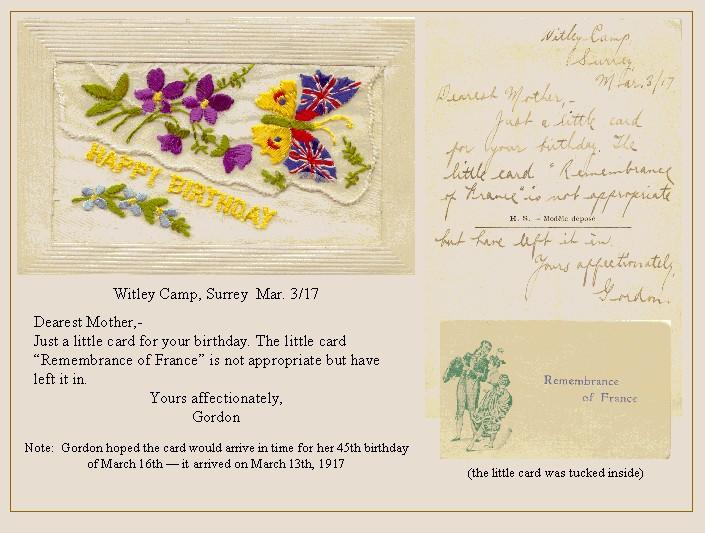 HAPPY BIRTHDAY
Witley Camp, Surrey Mar. 3/17
Dearest Mother,-
Just a little card for your birthday. The little card
“Remembrance of France” is not appropriate but have
left it in.
Yours affectionately,
Gordon
Note: Gordon hoped the card would arrive in time for her 45th birthday
of March 16th — it arrived on March 13th, 1917
Witley Camp,
Surrey
Mar. 3/17
Dearest Mother,-
Just a little card
for your birthday. The
little card "Remembrance
of France" is not appropriate
H. S. – Modèle déposé
but have left it in.
Yours affectionately,
Gordon.
Remembrance
of France
(the little card was tucked inside)